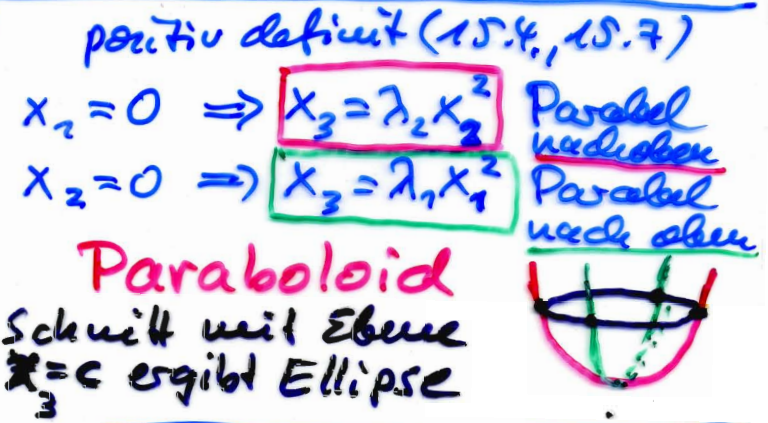 positiv definit (15.4., 15.7)
x₁ = 0 ⇒ x₃ = λ₂x₂² Parabel nach oben
x₂ = 0 ⇒ x₃ = λ₁x₁² Parabel nach oben
Paraboloid
Schnitt mit Ebene
x₃ = c ergibt Ellipse